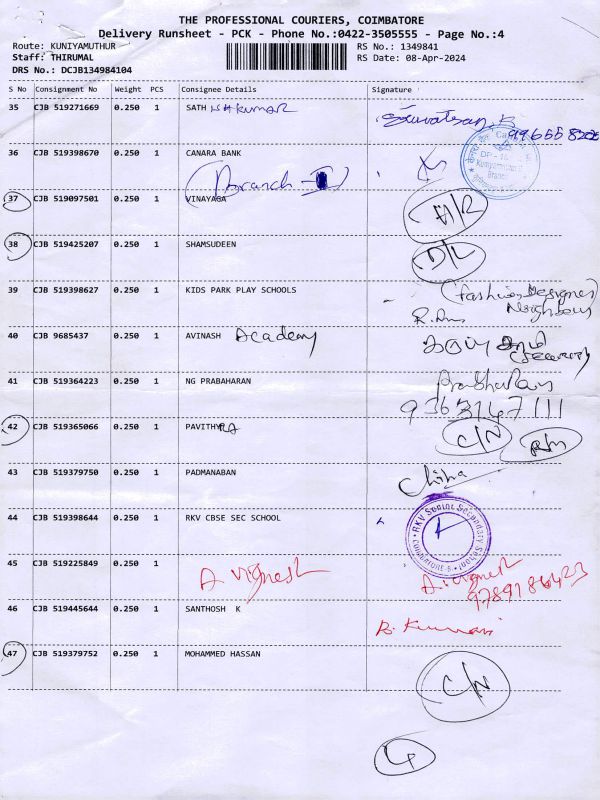 THE PROFESSIONAL COURIERS, COIMBATORE
Delivery Runsheet - PCK - Phone No.:0422-3505555 - Page No.:4
Route: KUNIYAMUTHUR RS No.: 1349841
Staff: THIRUMAL RS Date: 08-Apr-2024
DRS No.: DCJB134984104
S No Consignment No Weight PCS Consignee Details Signature
35 CJB 519271669 0.250 1 SATHISHKUMAR
36 CJB 519398670 0.250 1 CANARA BANK
Branch
37 CJB 519097501 0.250 1 VINAYAGA
38 CJB 519425207 0.250 1 SHAMSUDEEN D/L
39 CJB 519398627 0.250 1 KIDS PARK PLAY SCHOOLS (Fashion Designer)
Neighbour
40 CJB 9685437 0.250 1 AVINASH Academy
Security
41 CJB 519364223 0.250 1 NG PRABAHARAN Prabharan
9363147111
42 CJB 519365066 0.250 1 PAVITHRA C/N
43 CJB 519379750 0.250 1 PADMANABAN
44 CJB 519398644 0.250 1 RKV CBSE SEC SCHOOL RKV Senior Secondary School
45 CJB 519225849 0.250 1 A Vignesh A. Vignesh
9789186423
46 CJB 519445644 0.250 1 SANTHOSH K
47 CJB 519379752 0.250 1 MOHAMMED HASSAN C/N
4